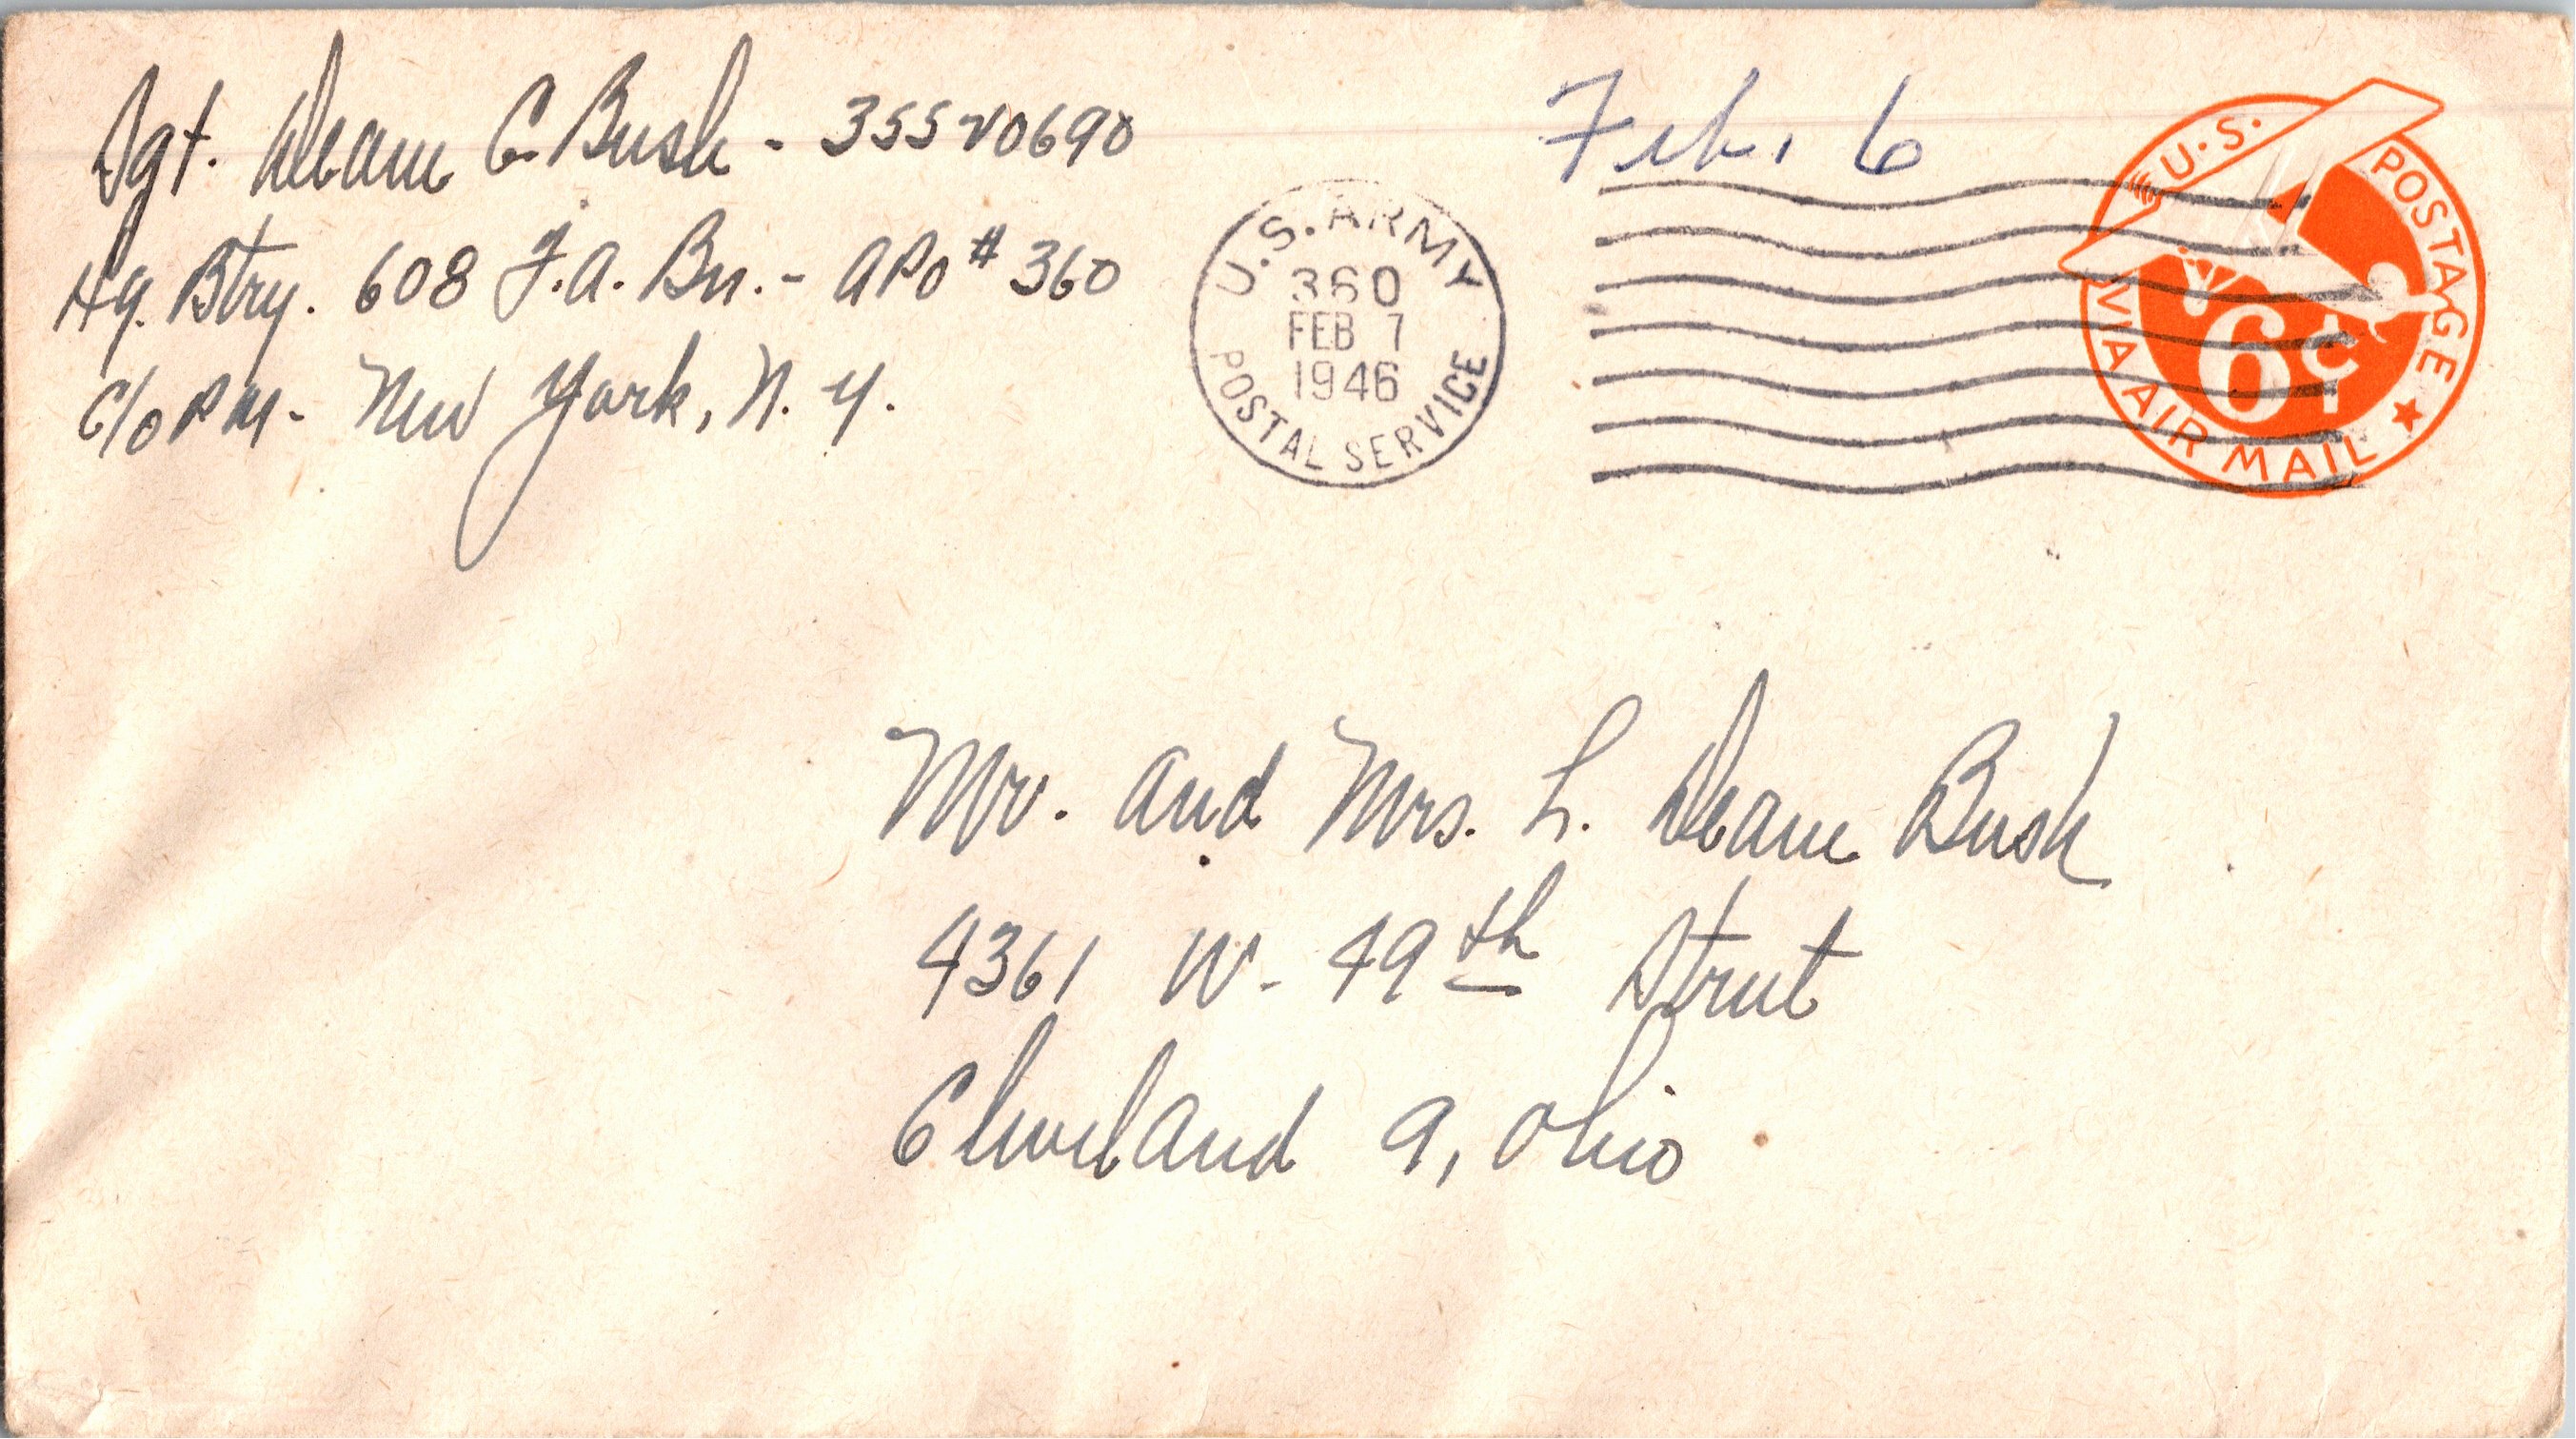 Sgt. Deane C. Bush - 35520690
Hq. Btry. 608 F.A. Bn. - APO # 360
c/o PM - New York, N.Y.
Feb. 6
U.S. ARMY
360
FEB 7
1946
POSTAL SERVICE
U.S. POSTAGE
6¢
VIA AIR MAIL
Mr. and Mrs. L. Deane Bush
4361 W. 49th Street
Cleveland 9, Ohio